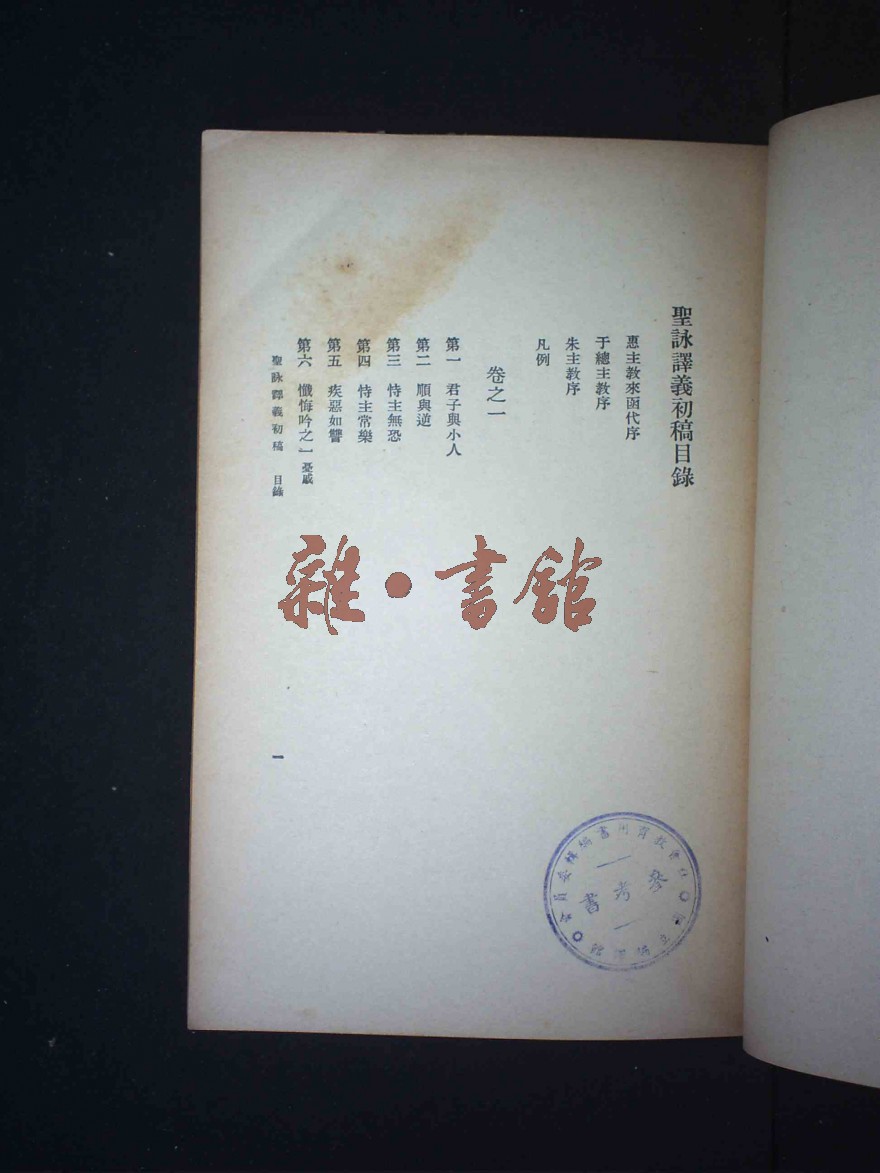 聖詠譯義初稿目錄
惠主教來函代序
于總主教序
朱主教序
凡例
卷之一
第一　君子與小人
第二　順與逆
第三　恃主無恐
第四　恃主常樂
第五　疾惡如讐
第六　懺悔吟之一 憂戚
聖詠譯義初稿　目錄
一
雜・書館
參考書